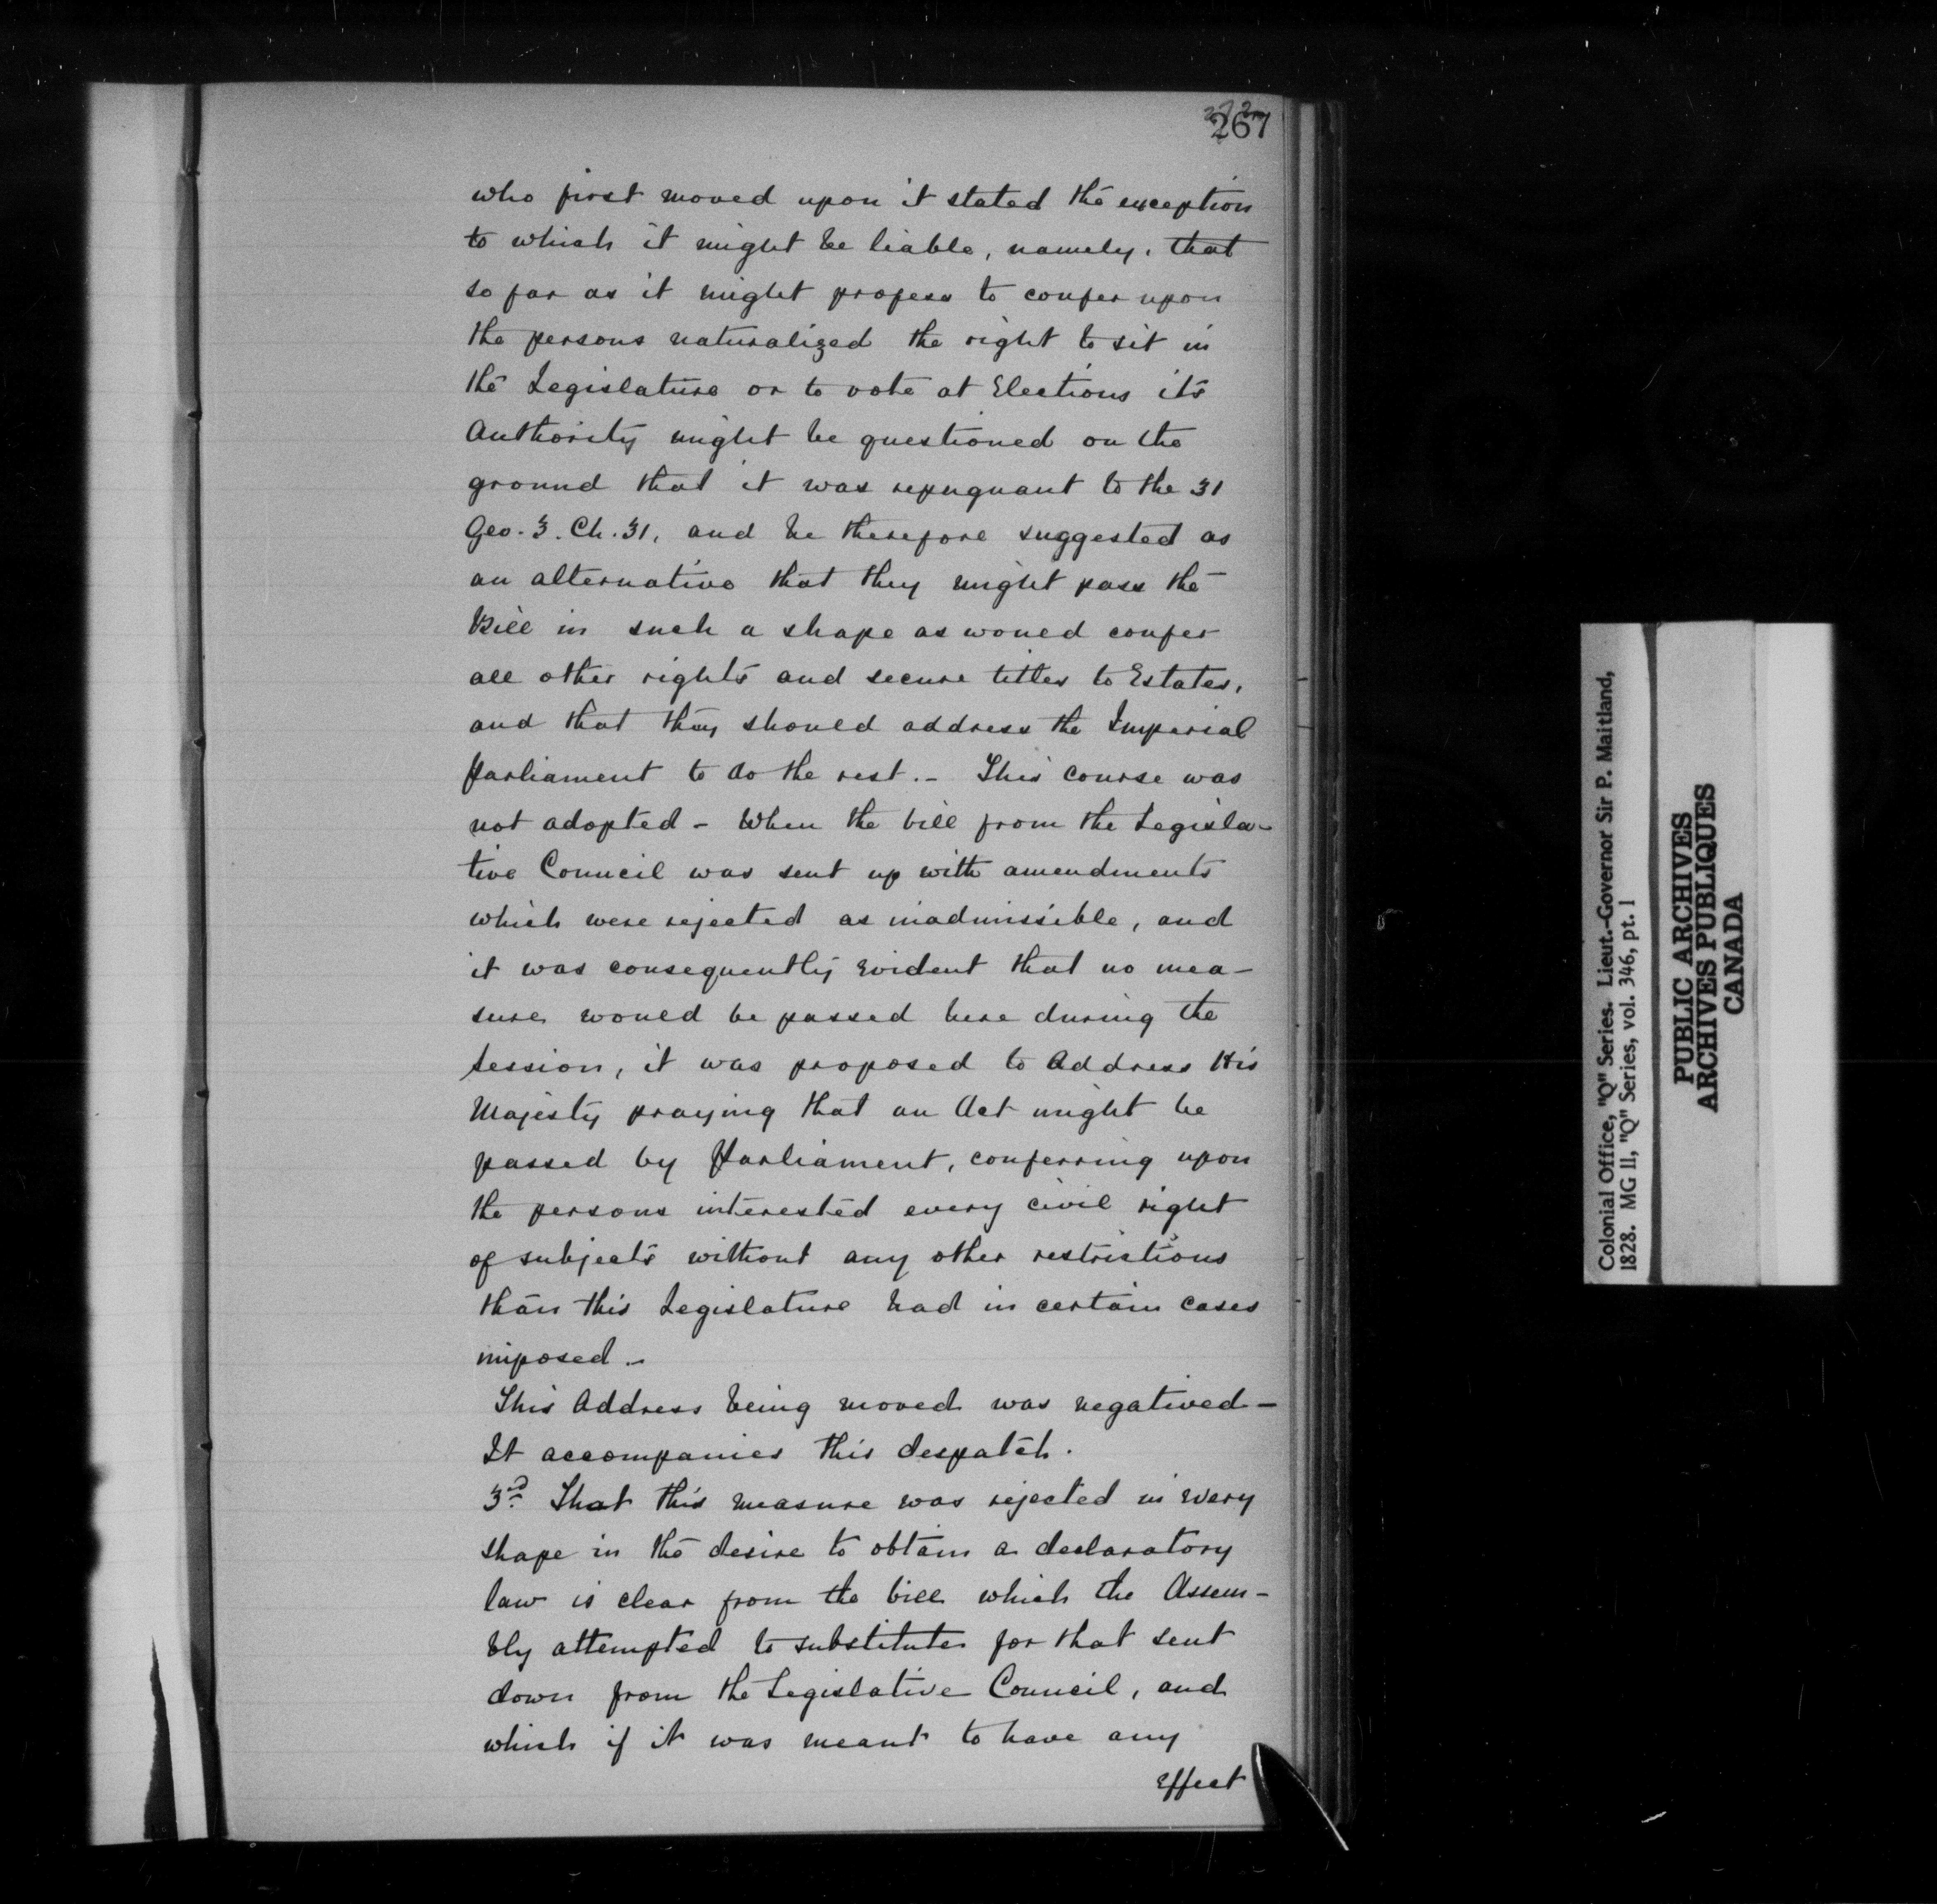 267
who first moved upon it stated the exception
to which it might be liable, namely, that
so far as it might profess to confer upon
the persons naturalized the right to sit in
the Legislature or to vote at Elections its
Authority might be questioned on the
ground that it was repugnant to the 31
Geo. 3. Ch. 31, and he therefore suggested as
an alternative that they might pass the
Bill in such a shape as would confer
all other rights and secure titles to Estates,
and that they should address the Imperial
Parliament to do the rest. - This course was
not adopted - When the bill from the Legisla-
tive Council was sent up with amendments
which were rejected as inadmissible, and
it was consequently evident that no mea-
sure would be passed here during the
session, it was proposed to Address His
Majesty praying that an Act might be
passed by Parliament, conferring upon
the persons interested every civil right
of subjects without any other restrictions
than this Legislature had in certain cases
imposed -
This Address being moved was negatived -
It accompanies this despatch.
3rd That this measure was rejected in every
shape in the desire to obtain a declaratory
law is clear from the bill which the Assem-
bly attempted to substitute for that sent
down from the Legislative Council, and
which if it was meant to have any
Effect
Colonial Office, "Q" Series. Lieut.-Governor Sir P. Maitland,
1828. MG 11, "Q" Series, vol. 346, pt. 1
PUBLIC ARCHIVES
ARCHIVES PUBLIQUES
CANADA